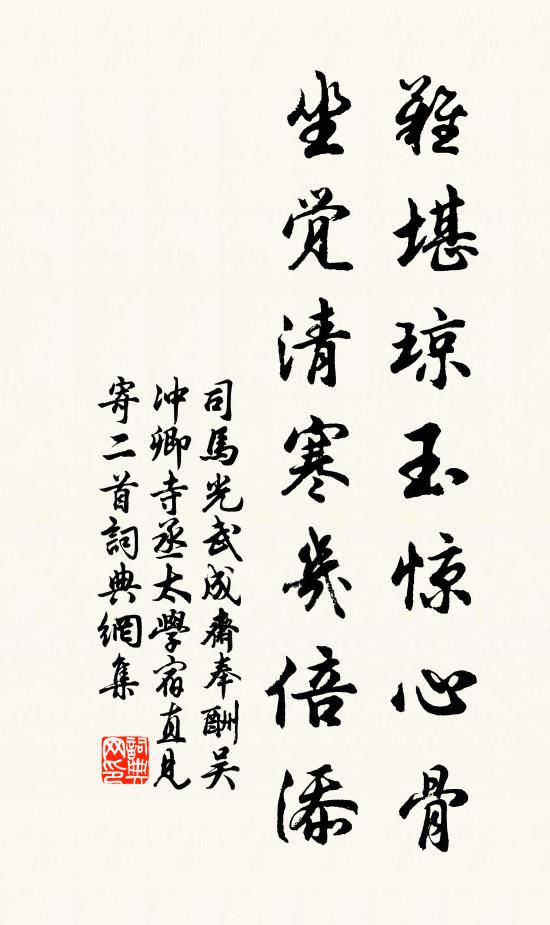 難堪琼玉惊心骨
坐觉清寒幾倍添
司馬光武成齋奉酬吴
冲卿寺丞太學宿直見
寄二首詞典網集
詞典
网印